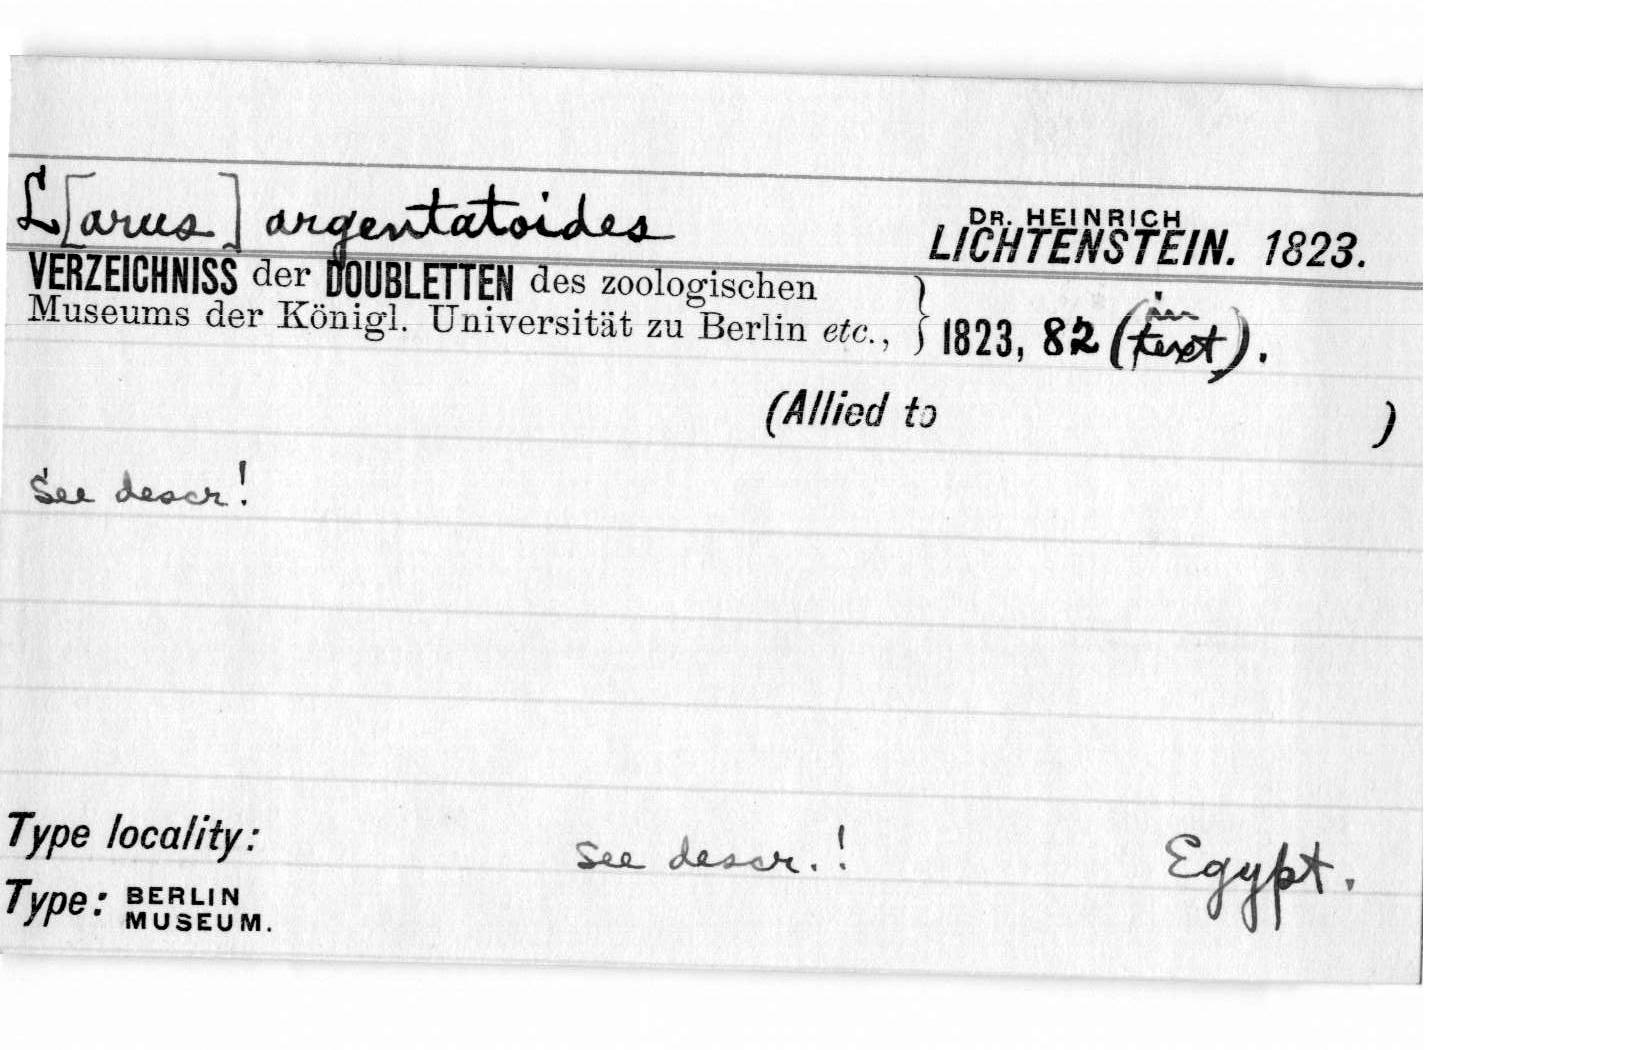 L[arus] argentatoides
DR. HEINRICH
LICHTENSTEIN. 1823.
VERZEICHNISS der DOUBLETTEN des zoologischen
Museums der Königl. Universität zu Berlin etc., } 1823, 82 (in text).
(Allied to )
See descr!
Type locality: See descr.! Egypt.
Type: BERLIN
MUSEUM.